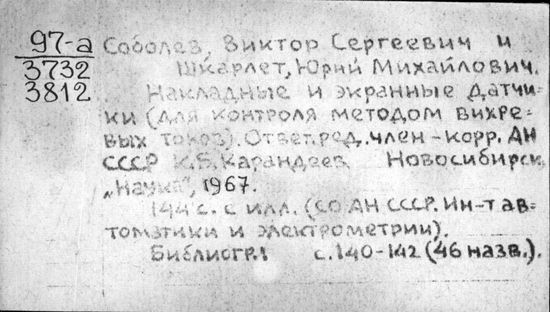 97-а Соболев, Виктор Сергеевич и
3732 Шкарлет, Юрий Михайлович.
3812 Накладные и экранные датчи-
ки (для контроля методом вихре-
вых токов). Ответ. ред. член-корр. АН
СССР К.Б. Карандеев. Новосибирск,
„Наука", 1967.
144 с. с илл. (СО АН СССР. Ин-т ав-
томатики и электрометрии).
Библиогр. с. 140-142 (46 назв.).